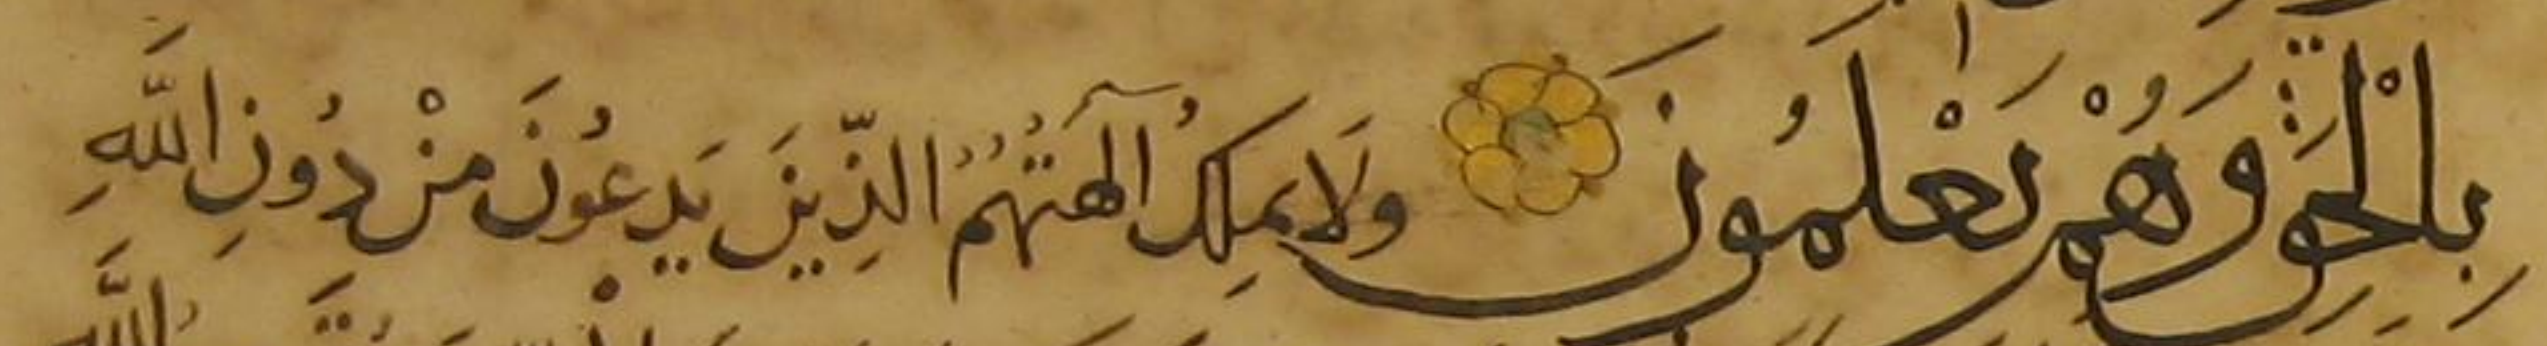 بِالْحَقِّ وَهُمْ يَعْلَمُونَ وَلَا يملِكُ آلهتُهُمُ الَّذِينَ يَدعُونَ مِنْ دُونِ اللَّهِ